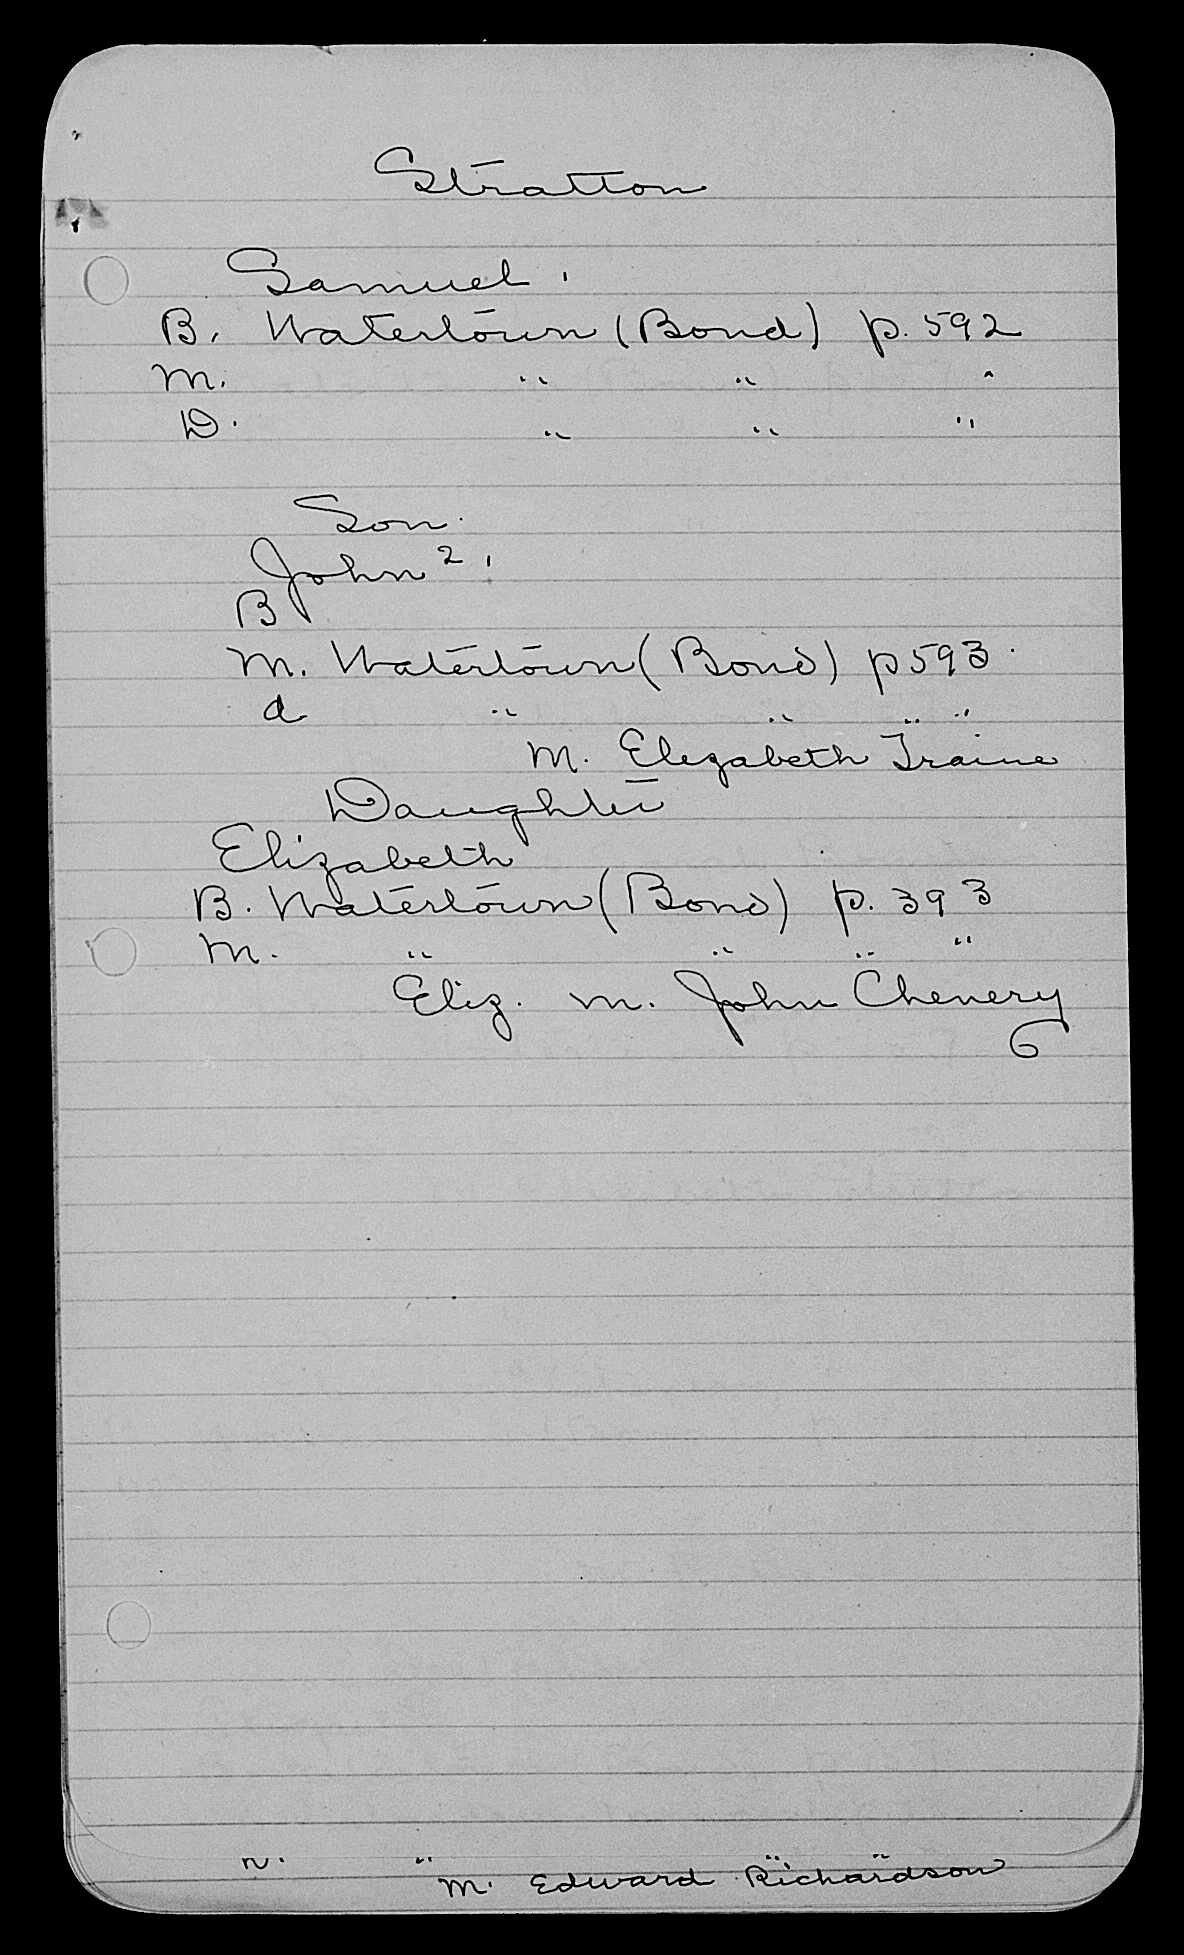 Stratton
Samuel.
B. Watertown (Bond) p. 592
M. " " "
D. " " "
Son.
John 2.
B
M. Watertown (Bond) p 593.
d " " " "
M. Elezabeth Traine
Daughter
Elizabeth
B. Watertown (Bond) p. 393
M. " " " "
Eliz. m. John Chenery
6
" "
M. Edward Richardson